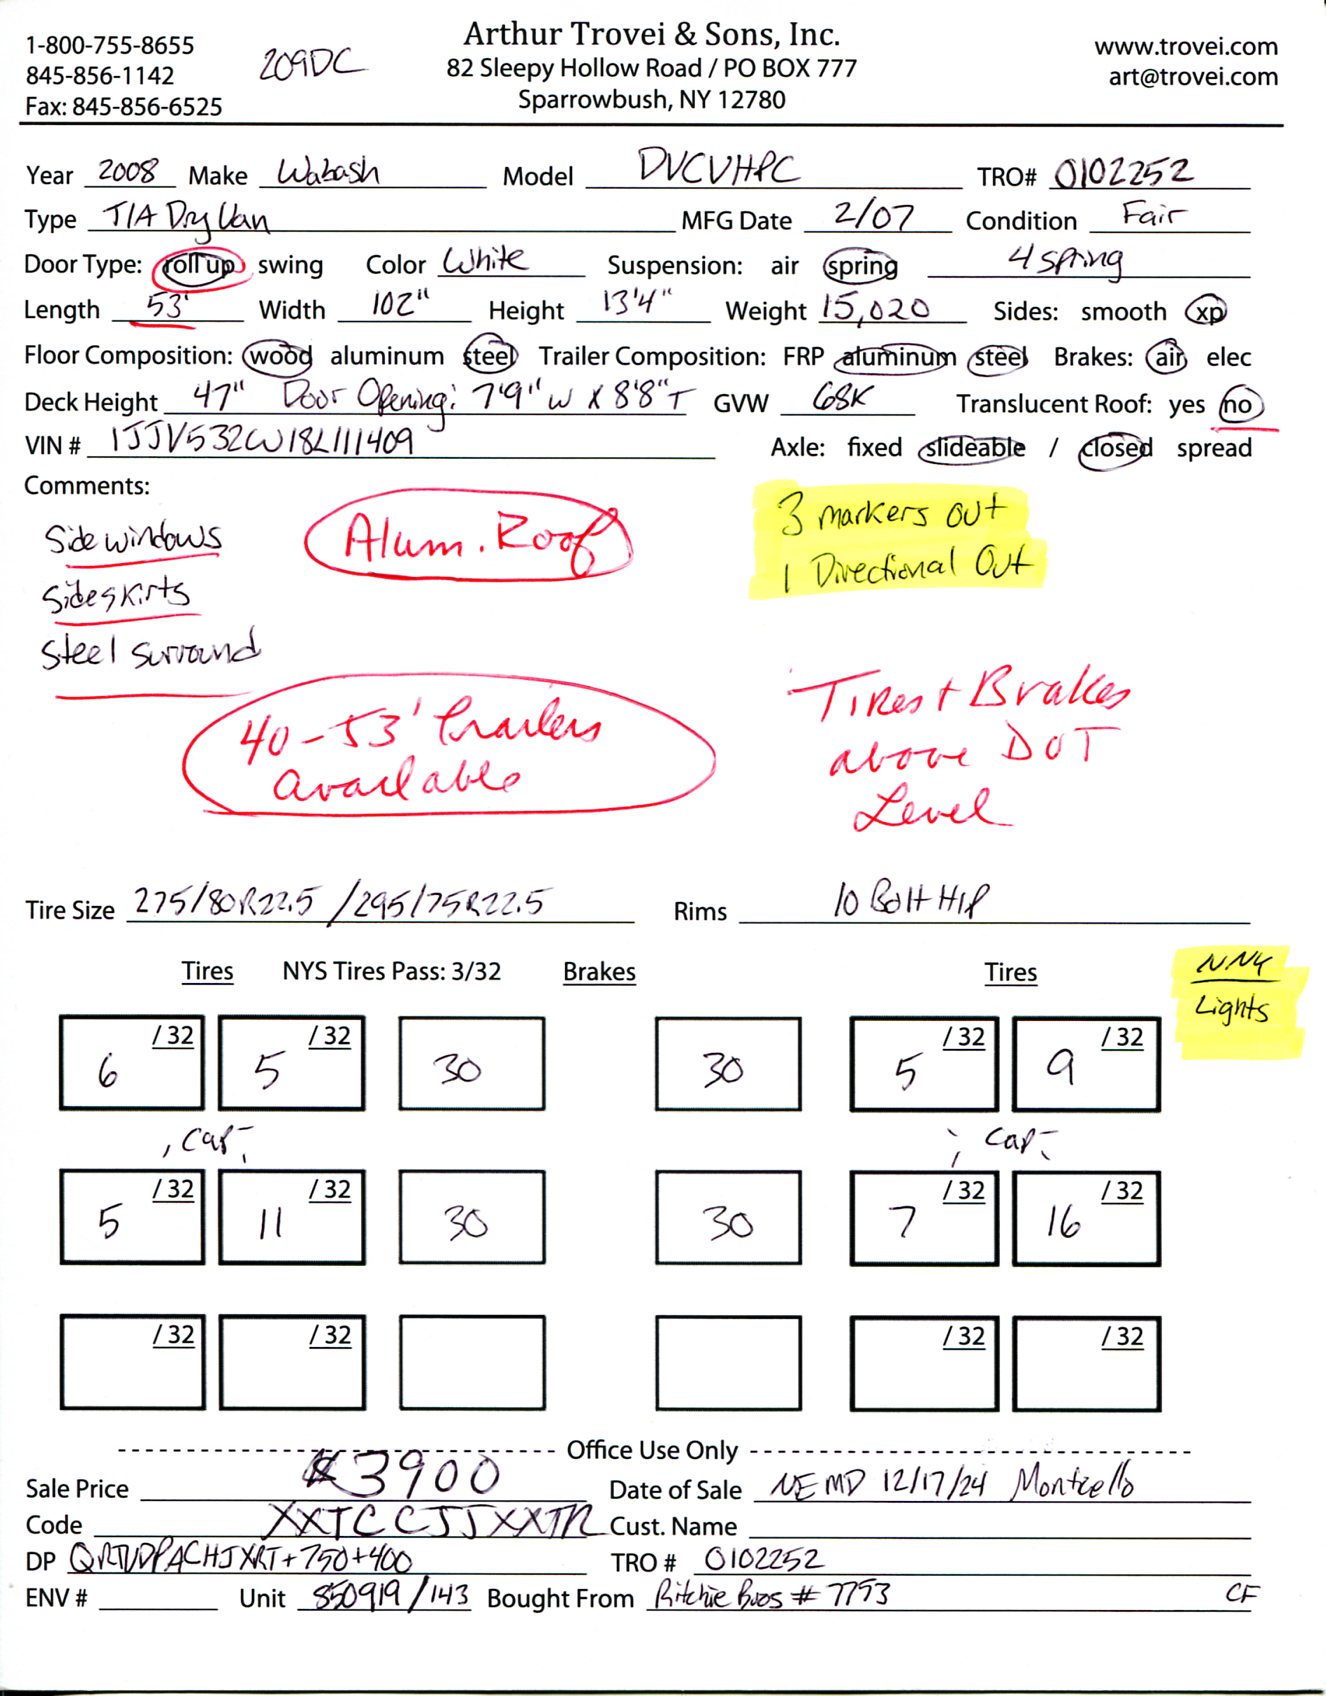 1-800-755-8655
845-856-1142
Fax: 845-856-6525
209DC
Arthur Trovei & Sons, Inc.
82 Sleepy Hollow Road / PO BOX 777
Sparrowbush, NY 12780
www.trovei.com
art@trovei.com
Year 2008 Make Wabash Model DVCVHPC TRO# 0102252
Type T/A Dry Van MFG Date 2/07 Condition Fair
Door Type: roll up swing Color White Suspension: air spring 4 spring
Length 53' Width 102" Height 13'4" Weight 15,020 Sides: smooth xp
Floor Composition: wood aluminum steel Trailer Composition: FRP aluminum steel Brakes: air elec
Deck Height 47" Door Opening: 7'9" W X 8'8" T GVW 68K Translucent Roof: yes no
VIN # 1JJV532W18L111409 Axle: fixed slideable / closed spread
Comments:
Side windows
Sideskirts
Steel surround
Alum. Roof
3 markers out
1 Directional Out
40-53' trailers
available
Tires + Brakes
above DOT
Level
Tire Size 275/80R22.5 /295/75R22.5 Rims 10 Bolt H/P
Tires NYS Tires Pass: 3/32 Brakes Tires
NNY
Lights
6 /32 5 /32 30 30 5 /32 9 /32
, cap - , ; cap - ,
5 /32 11 /32 30 30 7 /32 16 /32
/32 /32 /32 /32
Office Use Only
Sale Price 3900 Date of Sale NEMD 12/17/24 Monticello
Code XXTCCJJXXTR Cust. Name
DP +750+400 TRO # 0102252
ENV # Unit 850919/143 Bought From Ritchie Bros # 7793 CF